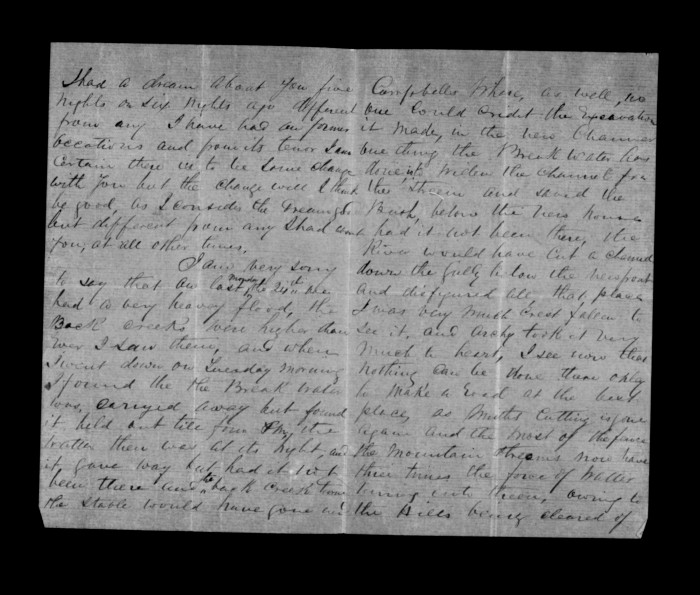 I had a dream about you five
Nights or six Nights ago different
from any I have had on former
occations and from its tenor I am
Certain there is to be some change
with you but the change will I think
be good, as I consider the dream good
but different from any I had about
you, at all other times.
I am very sorry
to say that on last monday the 24th we
had a very heavey flood, the
Back creeks were higher than
ever I saw them, and when
I went down on Tuesday morning
I found the the Break water
was, carryed away but found
it held out till four P.M, the
watter then was at its hight, and
it gave way but had it not
been there the back Creek from
the Stable would have gone in
Campbells place, as well, no
one could credit the excavation
it made, in the new Channel
one thing the Break Water has
done it's widen the channel for
the Stream and saved the
Bush, below the New house
had it not been there, the
River would have cut a channel
down the gully below the
and disfigured all that place
I was very much Crest fallen to
see it, and Archy took it very
much to heart, I see now that
Nothing can be done there only
to make a Road at the best
place, as Smiths Cutting is gone
again and the most of the
the Mountain Streams now have
three times the force of Watter
in them, owing to
the Hills being cleared of